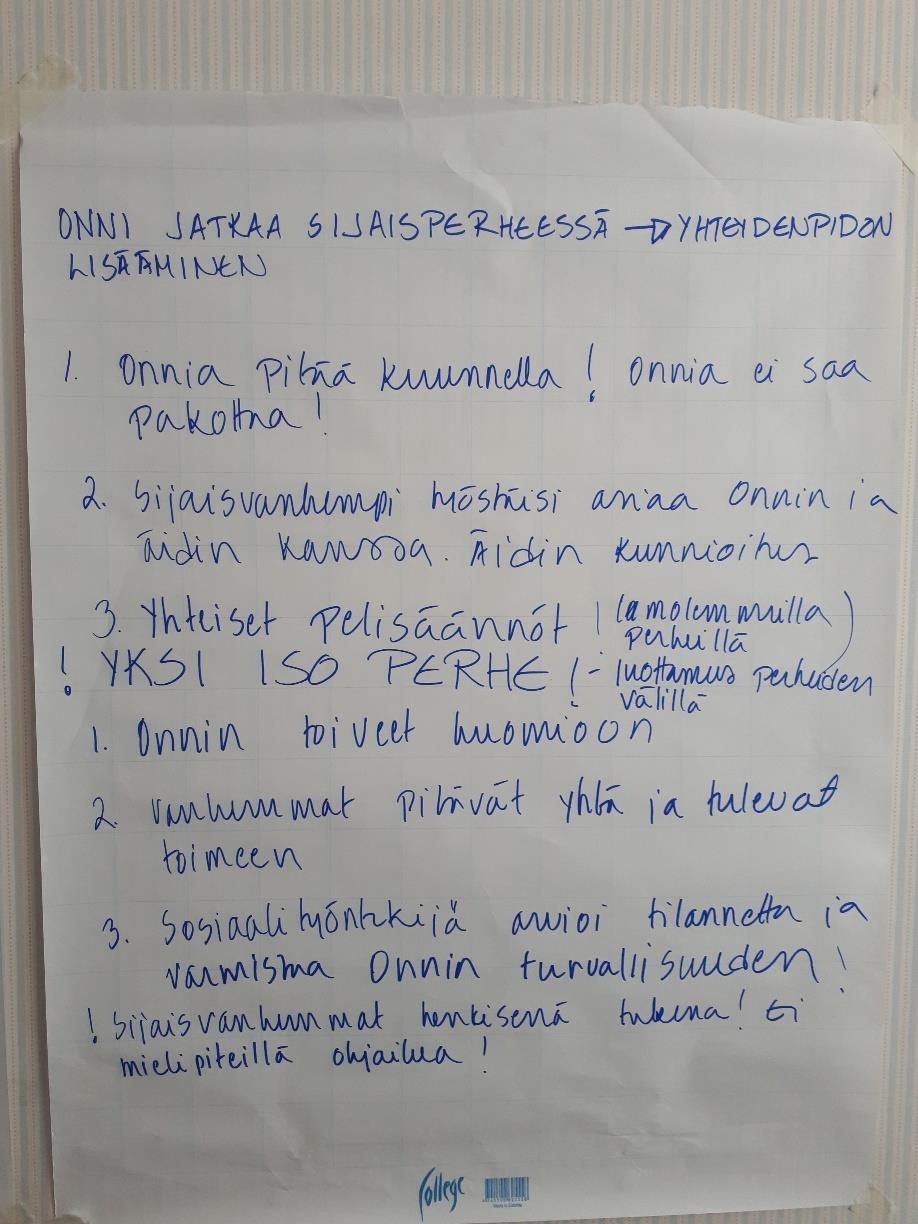 ONNI JATKAA SIJAISPERHEESSÄ → YHTEYDENPIDON
LISÄÄMINEN
1. Onnia pitää kuunnella! Onnia ei saa
pakottaa!
2. Sijaisvanhempi työstäisi asiaa Onnin ja
äidin kanssa. Äidin kunnioitus
3. Yhteiset pelisäännöt! (a molemmilla
perheillä)
! YKSI ISO PERHE! - luottamus perheiden
välillä
1. Onnin toiveet huomioon
2. vanhemmat pitävät yhtä ja tulevat
toimeen
3. Sosiaalityöntekijä arvioi tilannetta ja
varmistaa Onnin turvallisuuden!
! Sijaisvanhemmat henkisenä tukena! Ei
mielipiteillä ohjailua!
College